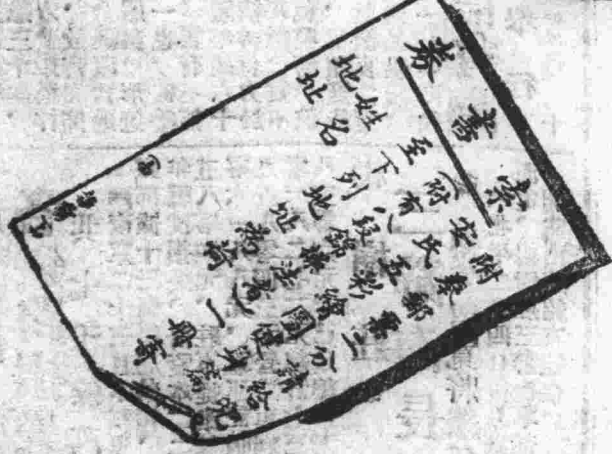 索書券
附奉郵票三分請給兜
安氏五彩繪圖健身
(附有八段錦操法者)一冊寄
至下列地址為荷
姓名
地址